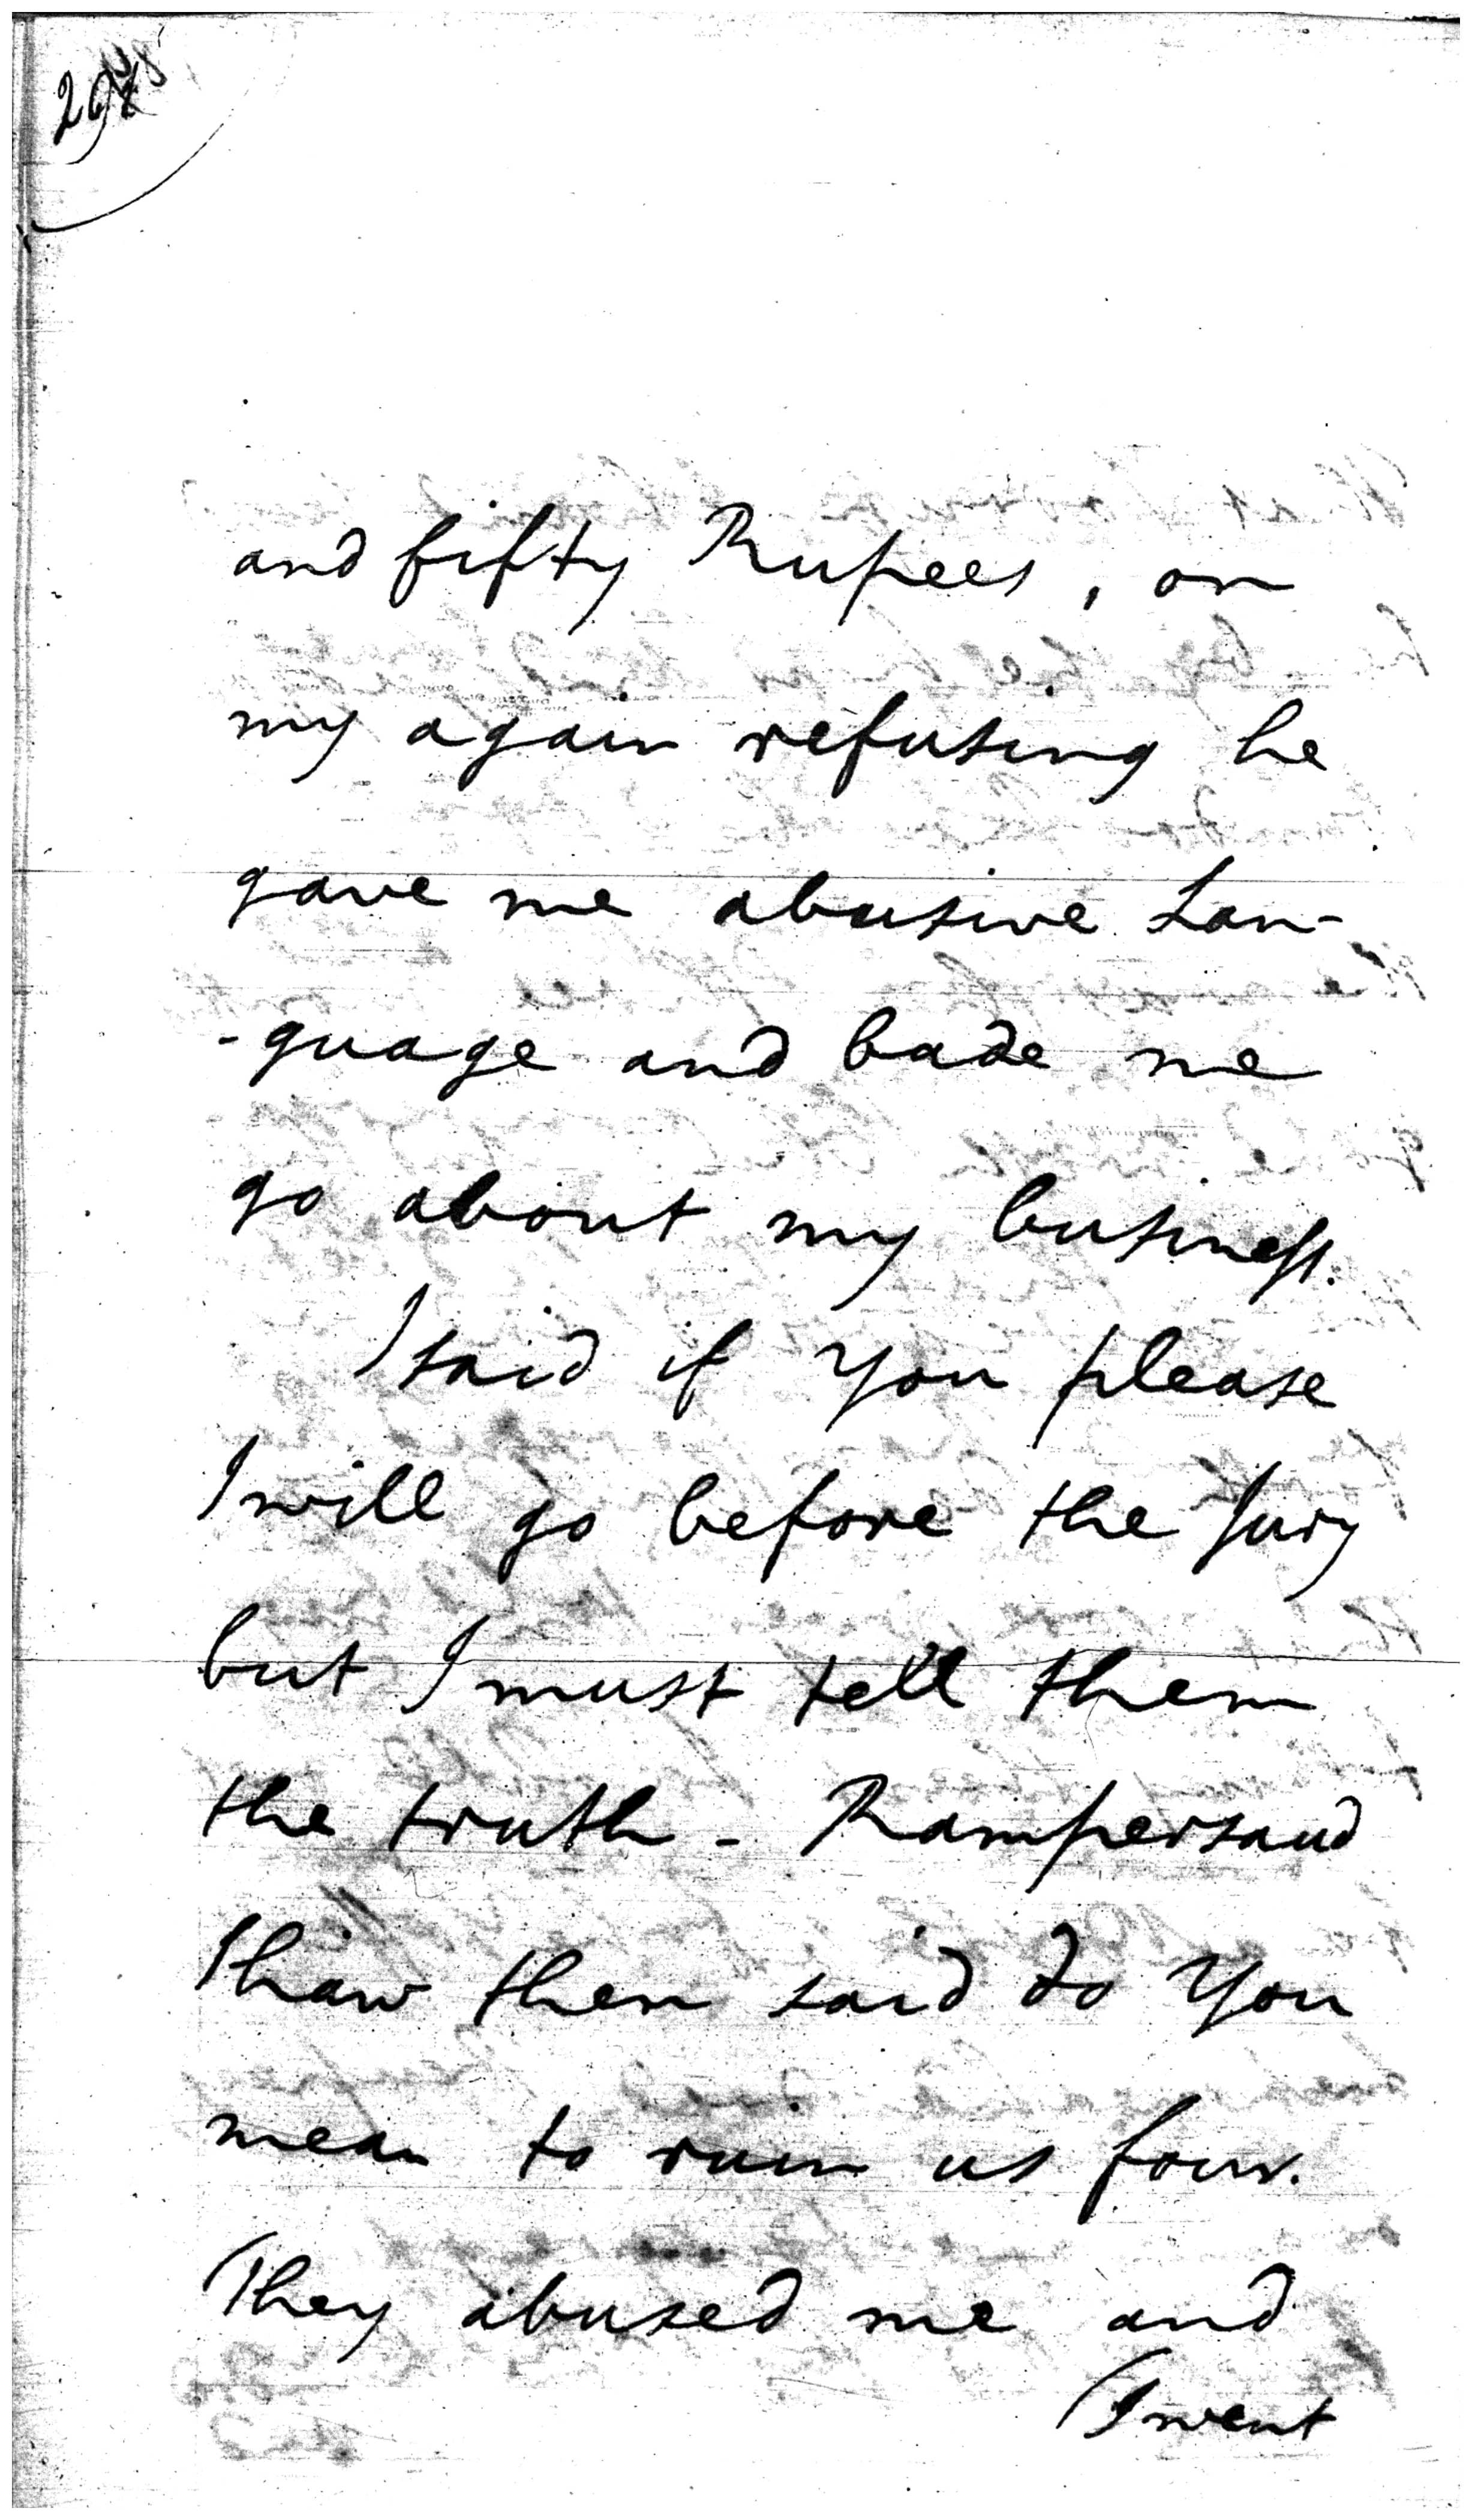 and fifty Rupees, on
my again refusing he
gave me abusive Lan-
-guage and bade me
go about my business.
I said if you please
I will go before the Jury
but I must tell them
the truth - Rampersaud
Thaw then said do you
mean to ruin us four.
They abused me and
I went